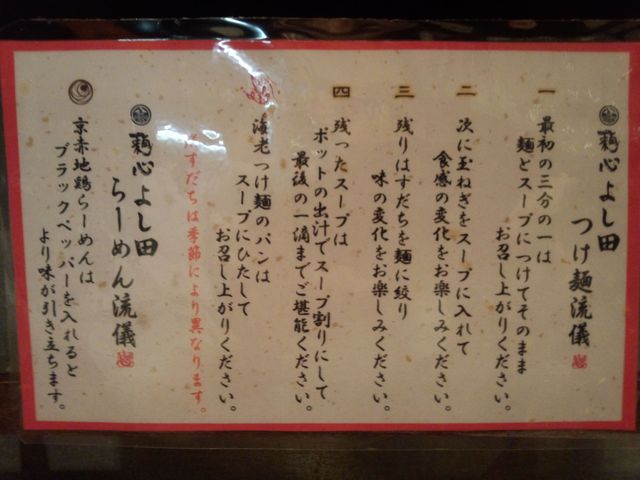 鶏心よし田
つけ麺流儀
一
最初の三分の一は
麺とスープにつけてそのまま
お召し上がりください。
二
次に玉ねぎをスープに入れて
食感の変化をお楽しみください。
三
残りはすだちを麺に絞り
味の変化をお楽しみください。
四
残ったスープは
ポットの出汁でスープ割りにして
最後の一滴までご堪能ください。
海老つけ麺のパンは
スープにひたして
お召し上がりください。
すだちは季節により異なります。
鶏心よし田
らーめん流儀
京赤地鶏らーめんは
ブラックペッパーを入れると
より味が引き立ちます。